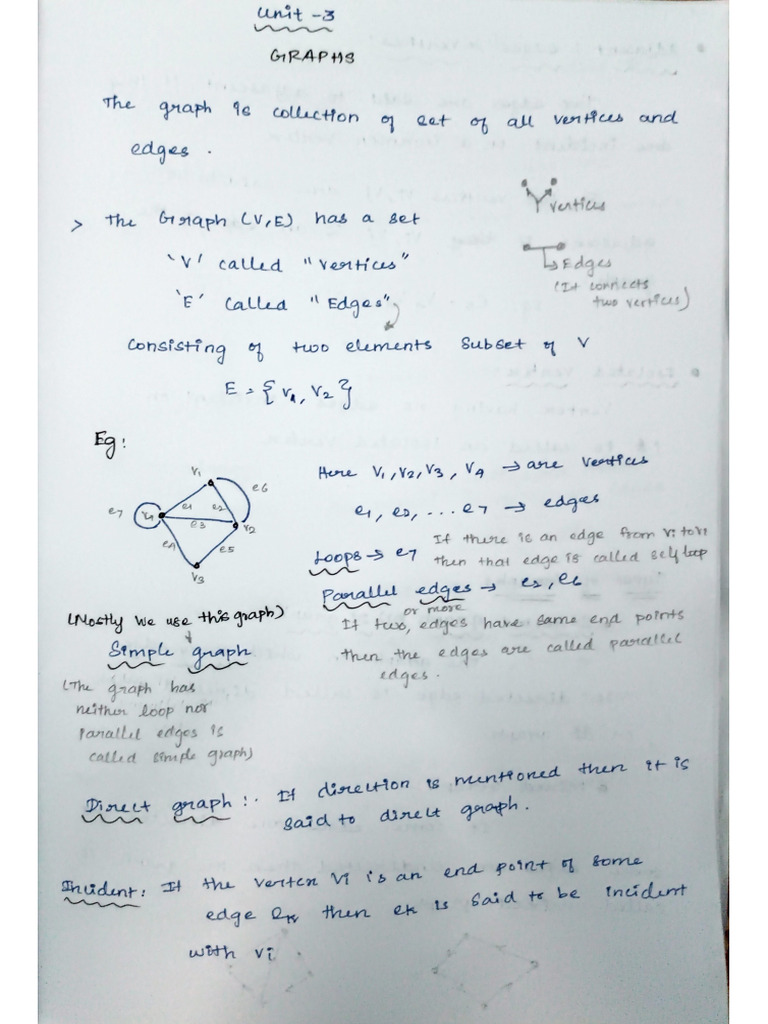 Unit - 3
GRAPHS
The graph is collection of set of all vertices and
edges .
> The Graph (V, E) has a set
'V' called "vertices"
'E' called "Edges"
vertices
Edges
(It connects
two vertices)
consisting of two elements subset of V
E = {v1, v2}
Eg:
v1
e6
e7
v4
e1
e2
e3
v2
e4
e5
v3
Here v1, v2, v3, v4 → are vertices
e1, e2, ... e7 → edges
Loops → e7 If there is an edge from vi to vi
then that edge is called self loop
Parallel edges → e2, e6
or more
If two, edges have same end points
then the edges are called parallel
edges.
(Mostly we use this graph)
Simple graph
(The graph has
neither loop nor
parallel edges is
called simple graph)
Direct graph :. If direction is mentioned then it is
said to direct graph.
Incident: If the vertex vi is an end point of some
edge ek then ek is said to be incident
with vi